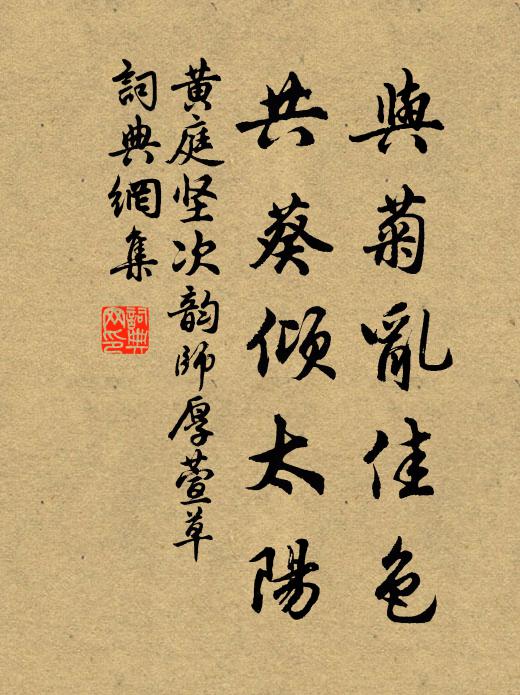 與菊亂佳色
共葵傾太陽
黄庭坚次韵師厚萱草
詞典網集
詞典
网印